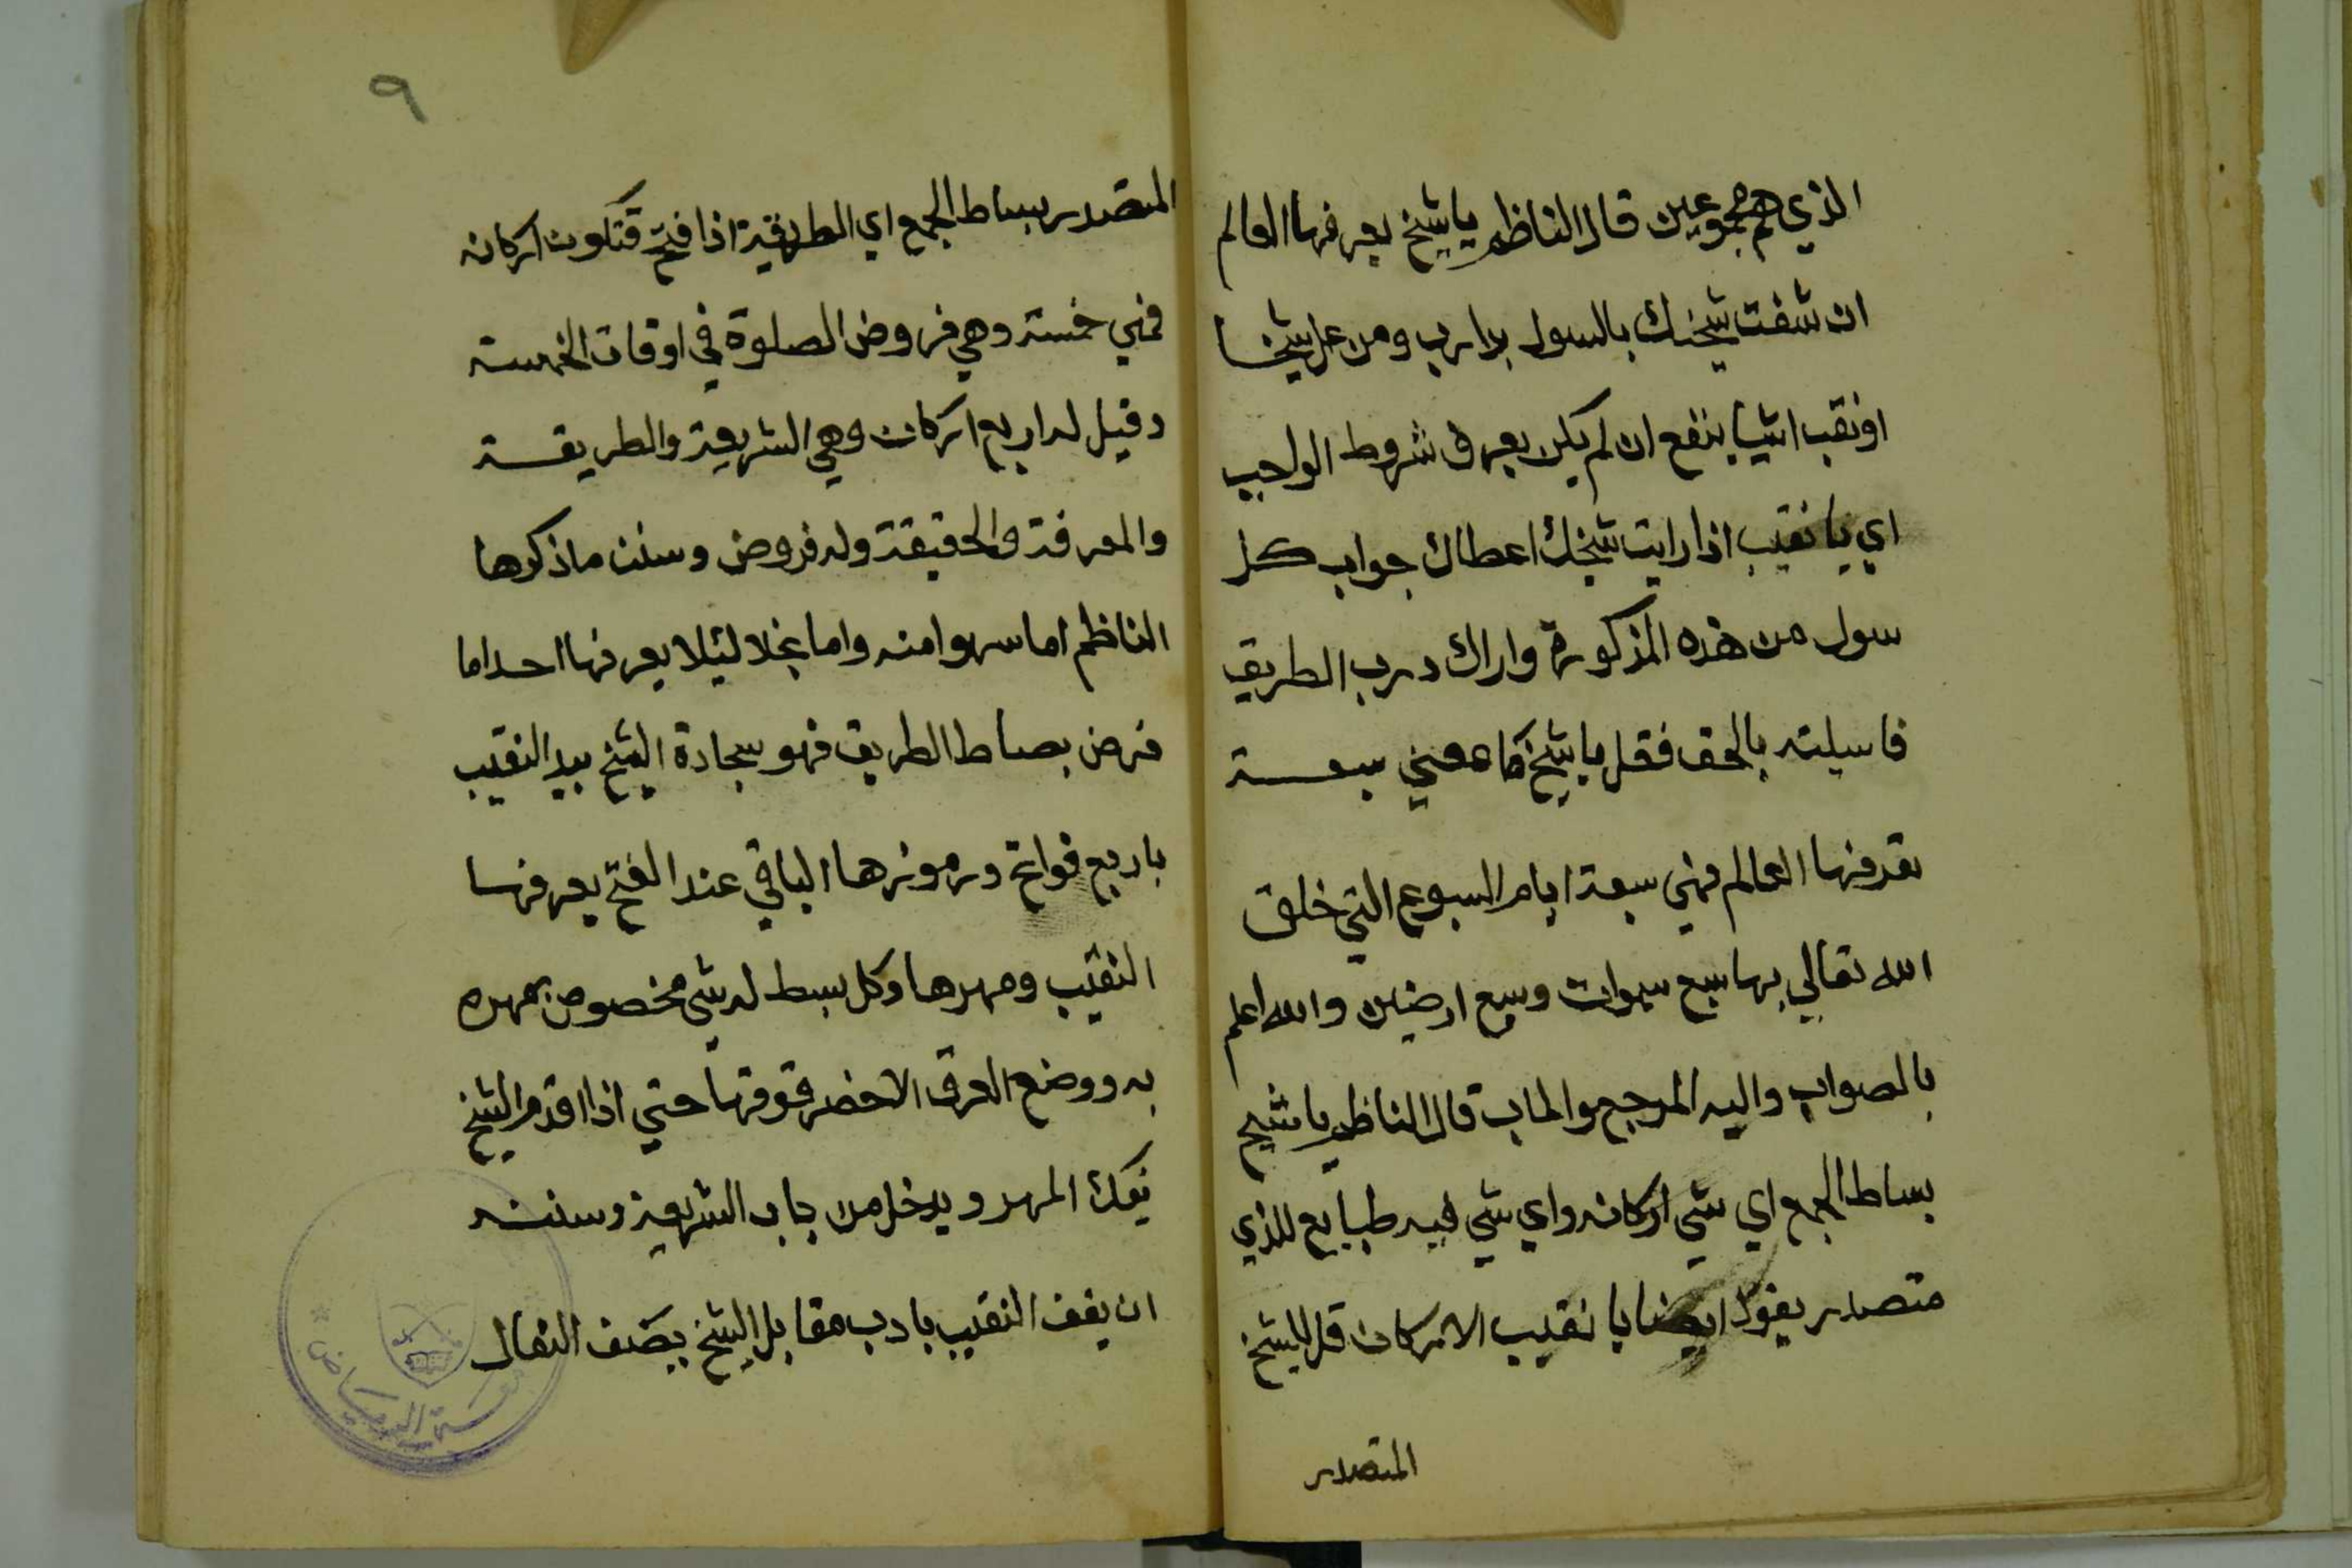 الذي هم مجموعين قال الناظم يا شيخ يعرفها العالم
ان شفت شيخك بالسول يدارب ومن علي شيخا
او نقب اشيا ينفع ان لم يكن يعرف شروط الواجب
اي يا نقيب اذا رايت شيخك اعطاك جواب كل
سول من هذه المذكورة واراك درب الطريق
فاسيلته بالحق فقل يا شيخ سبعة
يعرفها العالم فهي سبعة ايام السبوع التي خلق
الله تعالي بها سبع سموات وسبع ارضين والله اعلم
بالصواب واليه المرجع والماب قال الناظم يا شيخ
بساط الجمع اي شي اركانه واي شي فيه طبايع للذي
متصدر يقول ايضا يا نقيب الاركان قل للشيخ
المتصدر
٩
المتصدر بساط الجمع اي الطريقة اذا فتح فتكون اركانه
فهي خمسة وهي فروض الصلوة في اوقات الخمسة
وقيل له اربع اركان وهي الشريعة والطريقة
والمعرفة والحقيقة وله فروض وسنن ما ذكرها
الناظم اما سهوا منه واما بخلا لئلا يعرفها احد اما
فرض بصاط الطريق فهو سجادة الشيخ بيد النقيب
باربع فواتح ورموزها الباقي عند الفتح يعرفها
النقيب ومهرها وكل بسط له شي مخصوص بمهره
به ووضع العرق الاخضر فوقها حتي اذا اقدم الشيخ
يفك المهر ويدخل من باب الشريعة وسننه
ان يقف النقيب بادب مقابل الشيخ بصف النعال
الرياض